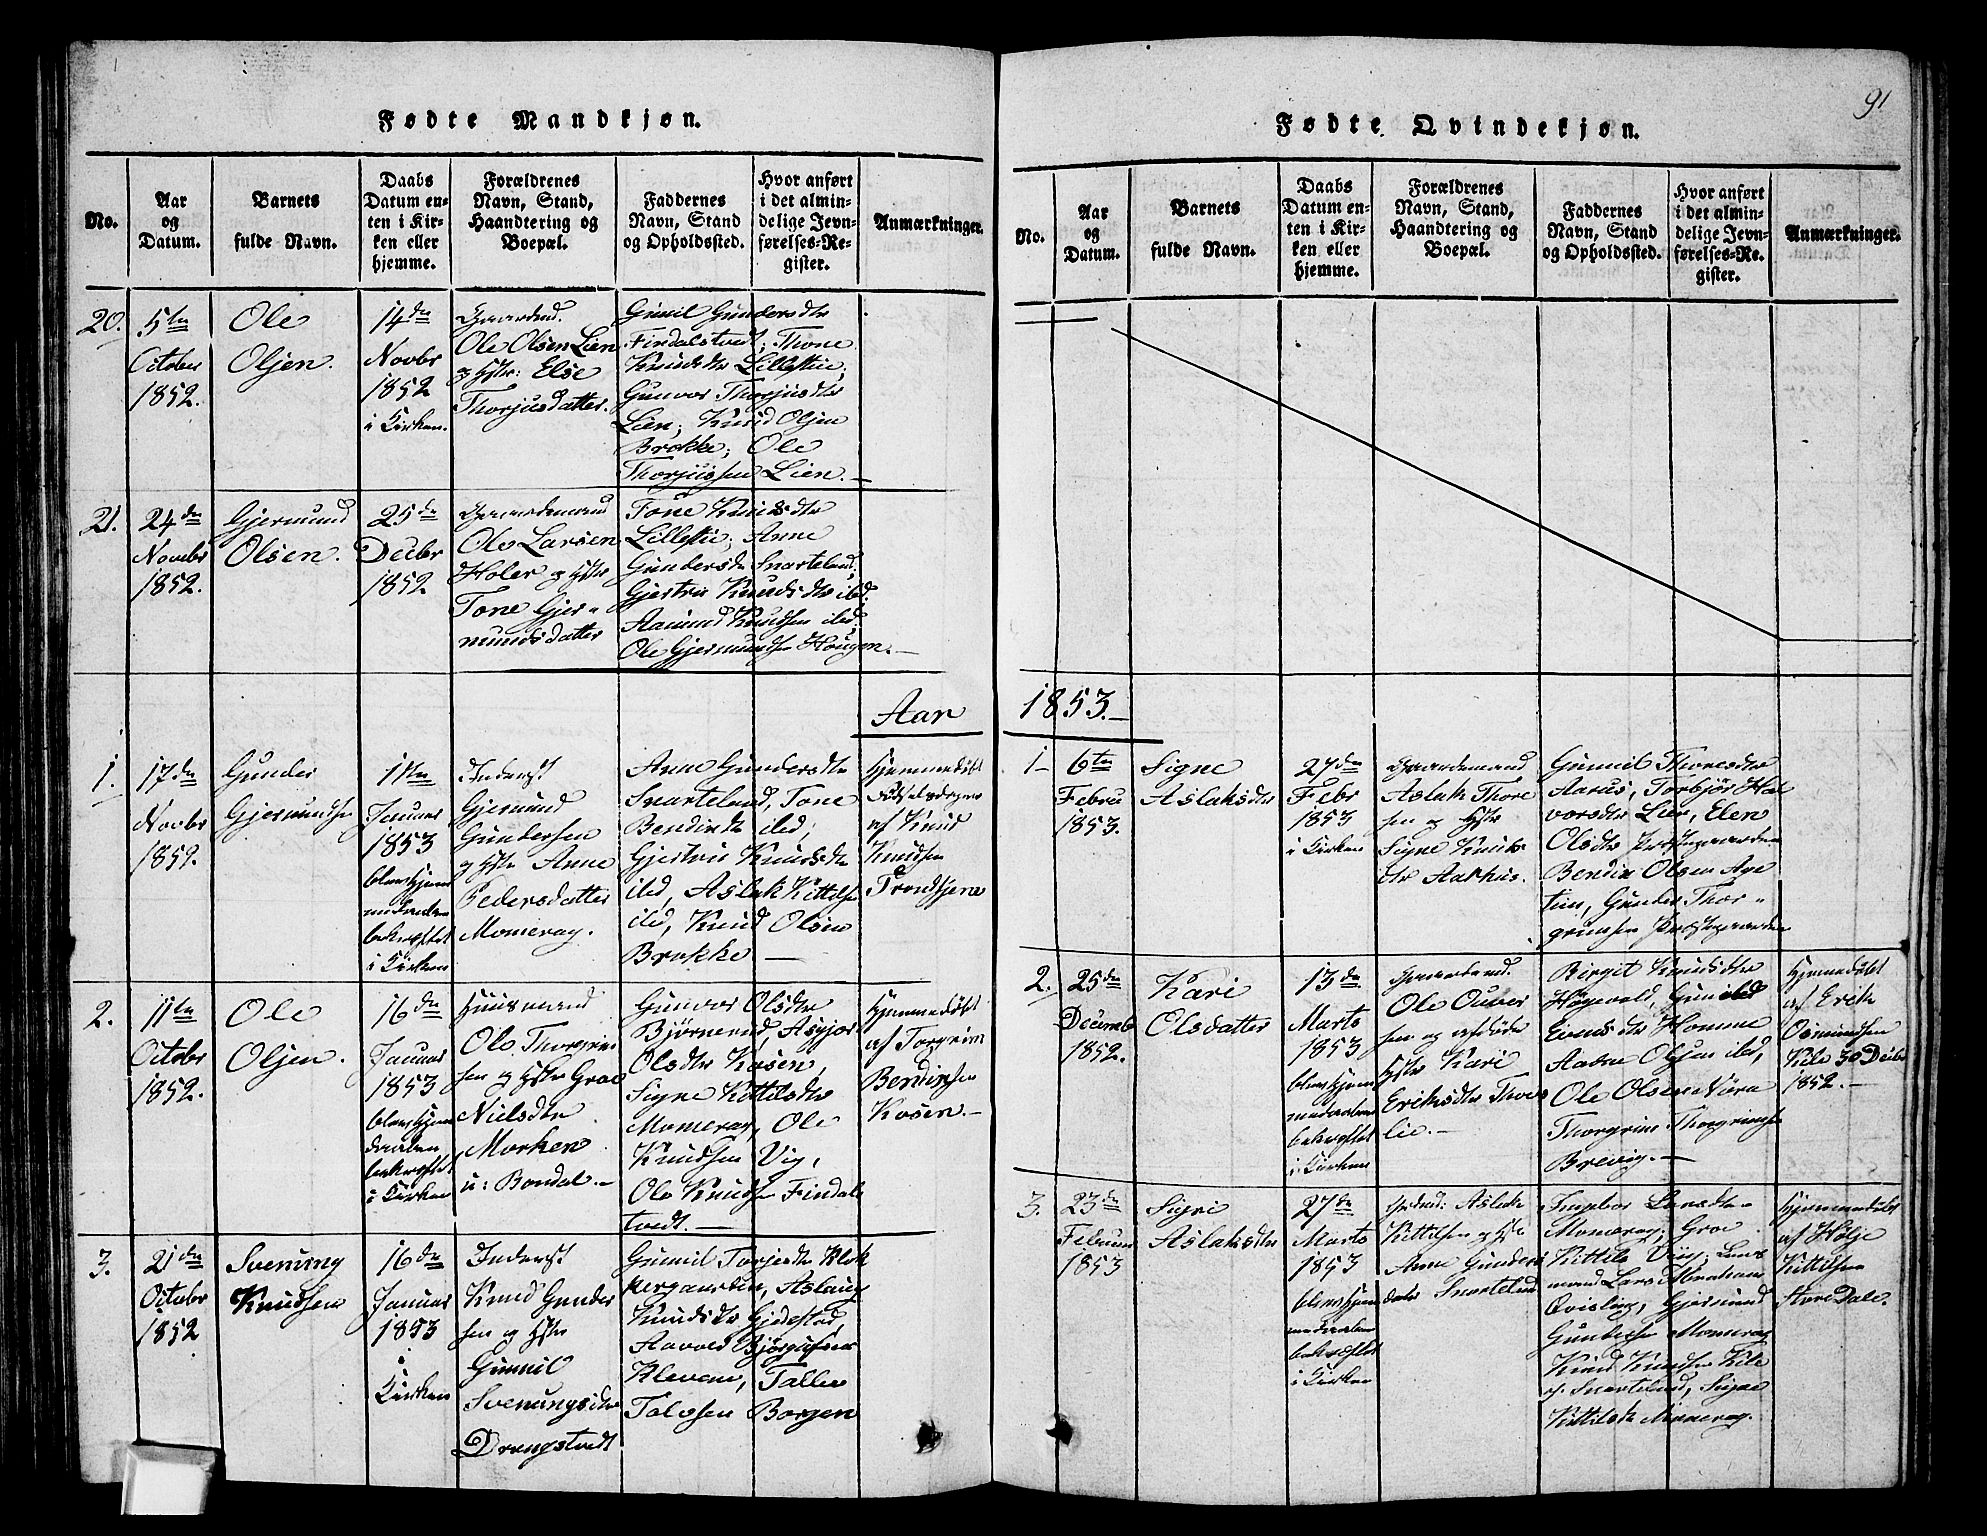 91
Fødte Mandkjøn.
No.
Aar
og
Datum.
Barnets
fulde Navn.
Daabs
Datum en-
ten i Kir-
ken eller
hjemme.
Forældrenes
Navn, Stand,
Haandtering og
Boepæl.
Faddernes
Navn, Stand
og Opholdssted.
Hvor anført
i det almin-
delige Jevn-
førelses-Re-
gister.
Anmærkninger.
20.
5te
October
1852.
Ole
Olsen.
14de
Novbr
1852
i Kirken.
Gaardmd.
Ole Olsen Lien
og Hstr: Else
Thorjusdatter.
Gunil Gundersdtr
Findalstvedt; Thone
Knudsdtr Lillestie;
Gunvor Thorjusdtr
Lien; Knud Olsen
Brokke; Ole
Thorjussen Lien.—
21.
24de
Novbr
1852.
Gjermund
Olsen.
25de
Decbr
1852
Gaardemand
Ole Larsen
Holer og Hstr
Tone Gjer-
mundsdatter
Tone Knudsdtr
Lillestie; Anne
Gundersdtr Snartelund;
Gjertru Knudsdtr ibd.
Aanund Knudsen ibd.
Ole Gjermundsen Hougen.—
Aar
1.
17de
Novbr
1852.
Gunder
Gjermundsen
11te
Januar
1853
i Kirken
Inderst
Gjermund
Gundersen
og Hstr Anne
Pedersdatter
Momerag.
Anne Gundersdtr
Snartelund, Tone
Bendixdtr ibd,
Gjertru Knudsdtr
ibd, Aslak Kittelsen
ibd, Knud Olsen
Brokke —
Hjemmedøbt
af Knud
Knudsen
2.
11te
October
1852.
Ole
Olsen.
16de
Januar
1853
bekræftet
i Kirken
Huusmand
Ole Thorgrim
sen og Hstr Groe
Nielsdtr
Morken
u: Bondal.—
Gunvor Olsdtr
Bjørnerud, Asgjør
Olsdtr Kosen,
Signe Kittilsdtr
Momerag, Ole
Knudsen Vig,
Ole Knudsen Findals
tvedt. —
Hjemmedøbt
af Torgrim
Bendixsen
Kosen.—
3.
21de
October
1852
Svenung
Knudsen
16de
Januar
1853
i
Kirken
Inderst
Knud Gunder
sen og Hstr
Gunnil
Svenungsdtr
Drengstvedt
Gunnil Torjesdtr Klok
kergaarden, Aslaug
Knudsdtr Gjedestad,
Aavold Bjørgufsen
Kleven, Tallev
Talofsen Borgen
Fødte Qvindekjøn.
No.
Aar
og
Datum.
Barnets
fulde Navn.
Daabs
Datum en-
ten i Kir-
ken eller
hjemme.
Forældrenes
Navn, Stand,
Haandtering og
Boepæl.
Faddernes
Navn, Stand
og Opholdssted.
Hvor anført
i det almin-
delige Jevn-
førelses-Re-
gister.
Anmærkninger.
1853.—
1—
6te
Febru
1853.
Signe
Aslaksdtr
27de
Febr
1853
i Kirken
Gaardemand
Aslak Thore
sen og Hstr
Signe Knuds
dtr Aarhus.
Gunnil Thoresdtr
Aarus, Torbjør Hal
vorsdtr Lien, Elen
Olsdtr Præstegaarden
Bendix Olsen Age
tun, Gunder Thor-
grimsen Præstegaarden
2.
25de
Decemb
1852.
Kari
Olsdatter
13de
Marts
1853
bekræftet
i Kirken
Gaardmd.
Ole Ouver
sen og afdøde
Hstr Kari
Eriksdtr Thors
lie.—
Birgit Knudsdtr
Høgevold, Gunild
Eivindsdtr Homme
Aasne Olsen ibd,
Ole Olsen Nora
Thorgrim Thorgrimsen
Brevig.—
Hjemmedøbt
af Erik
Osmundsen
Kile 30 Decbr
1852.—
3.
23de
Februar
1853
Signe
Aslaksdtr
27de
Marts
1853
bekræftet
i Kirken
Grdmd: Aslak
Kittilsen og Hstr
Anne Gunders
datr Snartelund
Ingebor Larsdtr
Momerag, Groe
Kittilsdtr Viig, Lens
mand Lars Abraham
Qvisling, Gjermund
Gundersen Momerag
Knud Knudsen Kile
p. Snartelund, Signe
Kittilsdtr Momerag.
Hjemmedøbt
af Hølje
Kittilsen
Store Dale.